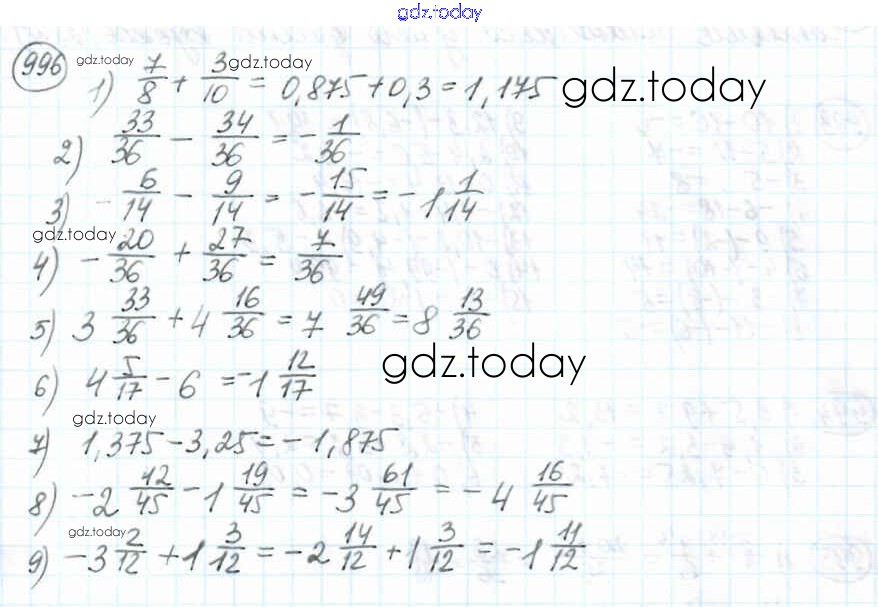 gdz.today
996 gdz.today 1) 7/8 + 3/10 gdz.today = 0,875 + 0,3 = 1,175 gdz.today
2) 33/36 - 34/36 = - 1/36
3) - 6/14 - 9/14 = - 15/14 = - 1 1/14
gdz.today
4) - 20/36 + 27/36 = 7/36
5) 3 33/36 + 4 16/36 = 7 49/36 = 8 13/36
gdz.today
6) 4 5/17 - 6 = - 1 12/17
gdz.today
7) 1,375 - 3,25 = - 1,875
8) - 2 42/45 - 1 19/45 = - 3 61/45 = - 4 16/45
gdz.today
9) - 3 2/12 + 1 3/12 = - 2 14/12 + 1 3/12 = - 1 11/12